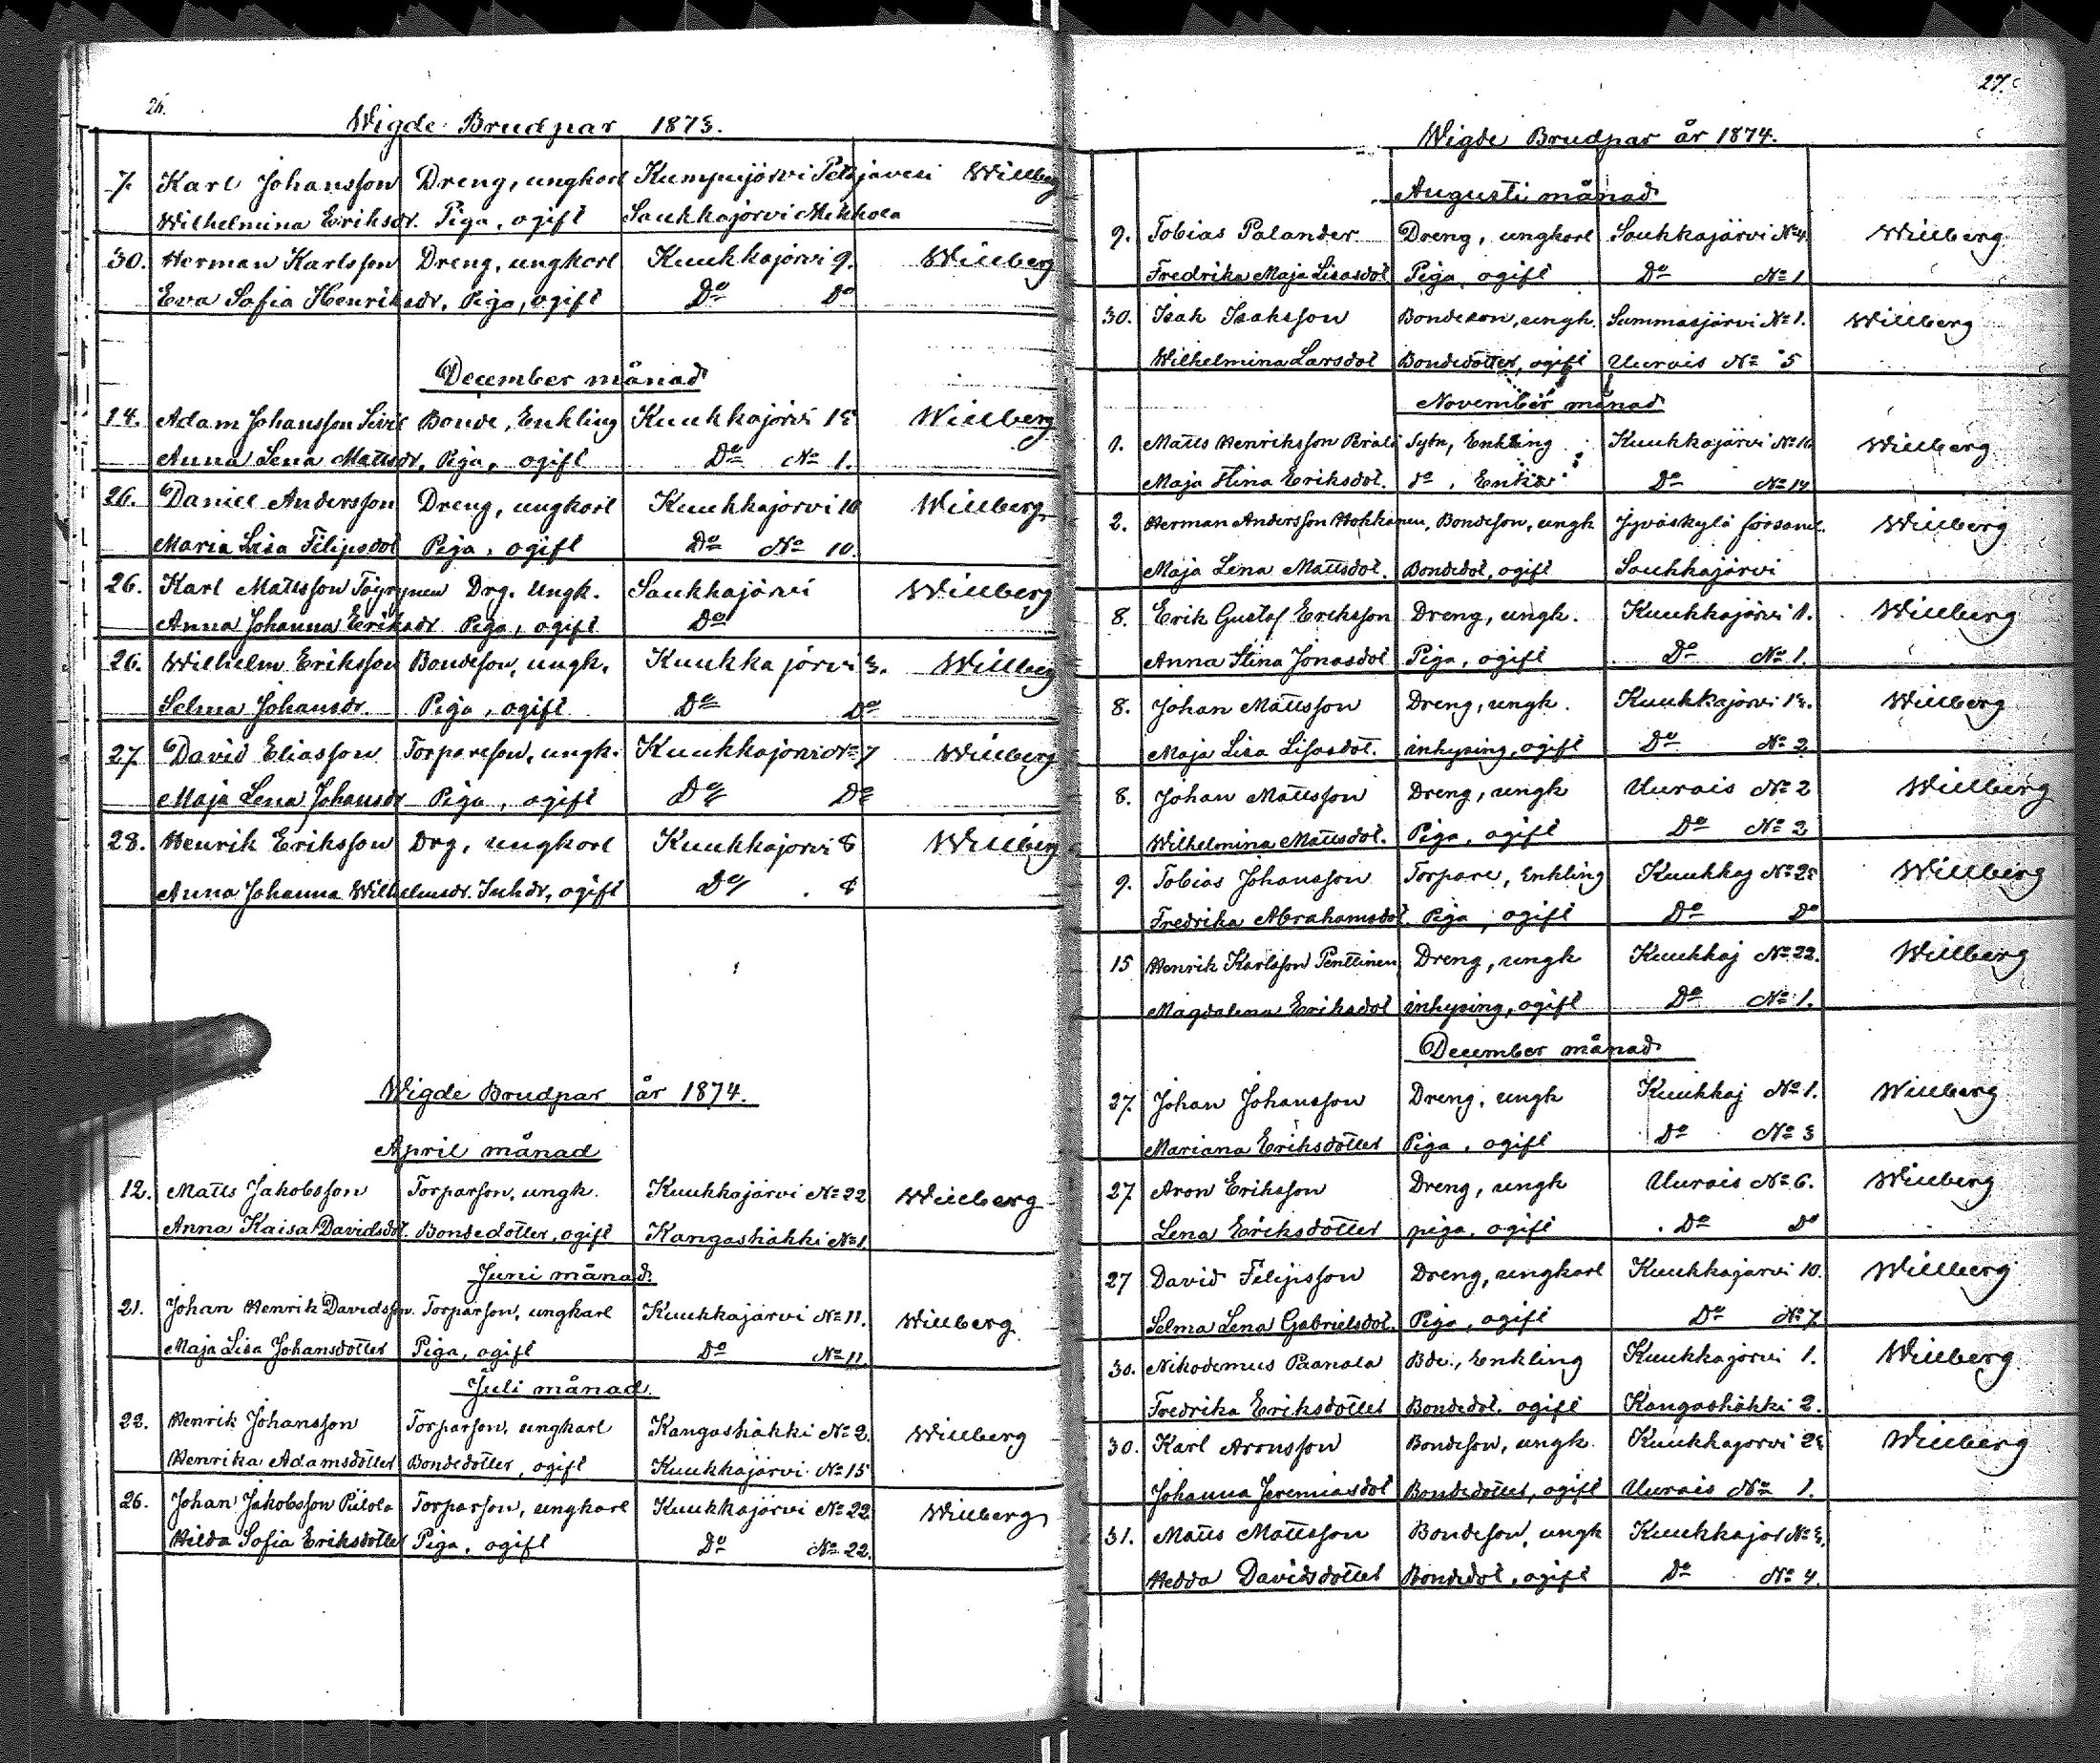 26.
Wigde Brudpar 1873.
7. Karl Johansson Dreng, ungkarl Kumpujärvi Petäjävesi Willberg
Wilhelmina Eriksdr. Piga, ogift Saukkajärvi Mikkola
30. Herman Karlsson Dreng, ungkarl Kuukkajärvi 9. Willberg
Eva Sofia Henriksdr, Piga, ogift Do Do
December månad
14. Adam Johansson Bonde, Enkling Kuukkajärvi 13 Willberg
Anna Lena Mattsdr, Piga, ogift Do No 1.
26. Daniel Andersson Dreng, ungkarl Kuukkajärvi 10 Willberg
Maria Lisa Filipsdot Piga, ogift Do No 10.
26. Karl Mattsson Drg. Ungk. Saukkajärvi Willberg
Anna Johanna Eriksdr Piga, ogift Do
26. Wilhelm Eriksson Bondeson, ungk. Kuukkajärvi 3. Willberg
Selma Johansdr. Piga, ogift Do Do
27 David Eliasson Torpareson, ungk. Kuukkajärvi No 7 Willberg
Maja Lena Johansdr Piga, ogift Do Do
28. Henrik Eriksson Drg, ungkarl Kuukkajärvi 8 Willberg
Anna Johanna Wilhelmsdr. Inhdr, ogift Do 8
Wigde Brudpar år 1874.
April månad
12. Matts Jakobsson Torparson, ungk. Kuukkajärvi No 22 Willberg
Anna Kaisa Davidsdot. Bondedotter, ogift Kangashäkki No 1
Juni månad
21. Johan Henrik Davidsson. Torparson, ungkarl Kuukkajärvi No 11. Willberg
Maja Lisa Johansdotter Piga, ogift Do No 11.
Juli månad.
22. Henrik Johansson Torparson, ungkarl Kangashäkki No 2. Willberg
Henrika Adamsdotter Bondedotter, ogift Kuukkajärvi No 15
26. Johan Jakobsson Piilola Torparson, ungkarl Kuukkajärvi No 22 Willberg
Hilda Sofia Eriksdotter Piga, ogift Do No 22.
27.
Wigde Brudpar år 1874.
Augusti månad
9. Tobias Palander Dreng, ungkarl Saukkajärvi No 4. Willberg
Fredrika Maja Lisasdot Piga, ogift Do No 1
30. Isak Isaksson Bondeson, ungk. Summasjärvi No 1. Willberg
Wilhelmina Larsdot Bondedotter, ogift Uurais No 5
November månad
1. Matts Henriksson Sytn, Enkling Kuukkajärvi No 16 Willberg
Maja Stina Eriksdot. do, Enka Do No 14
2. Herman Andersson Hokkanen, Bondeson, ungk Jyväskylä församl. Willberg
Maja Lena Mattsdot. Bondedot, ogift Saukkajärvi
8. Erik Gustaf Eriksson Dreng, ungk. Kuukkajärvi 1. Willberg
Anna Stina Jonasdot Piga, ogift Do No 1.
8. Johan Mattsson Dreng, ungk. Kuukkajärvi 13. Willberg
Maja Lisa Lisasdot. inhysing, ogift Do No 2
8. Johan Mattsson Dreng, ungk Uurais No 2 Willberg
Wilhelmina Mattsdot. Piga, ogift Do No 2
9. Tobias Johansson Torpare, Enkling Kuukkaj No 23 Willberg
Fredrika Abrahamsdot. Piga, ogift Do Do
15 Henrik Karlsson Penttinen Dreng, ungk Kuukkaj No 22. Willberg
Magdalena Eriksdot inhysing, ogift Do No 1.
December månad
27. Johan Johansson Dreng, ungk Kuukkaj No 1. Willberg
Mariana Eriksdotter Piga, ogift Do No 3
27 Aron Eriksson Dreng, ungk Uurais No 6. Willberg
Lena Eriksdotter piga, ogift Do Do
27 David Filipsson Dreng, ungkarl Kuukkajärvi 10. Willberg
Selma Lena Gabrielsdot. Piga, ogift Do No 7
30. Nikodemus Paanala Bde., Enkling Kuukkajärvi 1. Willberg
Fredrika Eriksdotter Bondedot. ogift Kangashäkki 2.
30. Karl Aronsson Bondeson, ungk. Kuukkajärvi 23 Willberg
Johanna Jeremiasdot Bondedotter, ogift Uurais No 1.
31. Matts Mattsson Bondeson, ungk Kuukkajär No 3.
Hedda Davidsdotter Bondedot, ogift Do No 4.